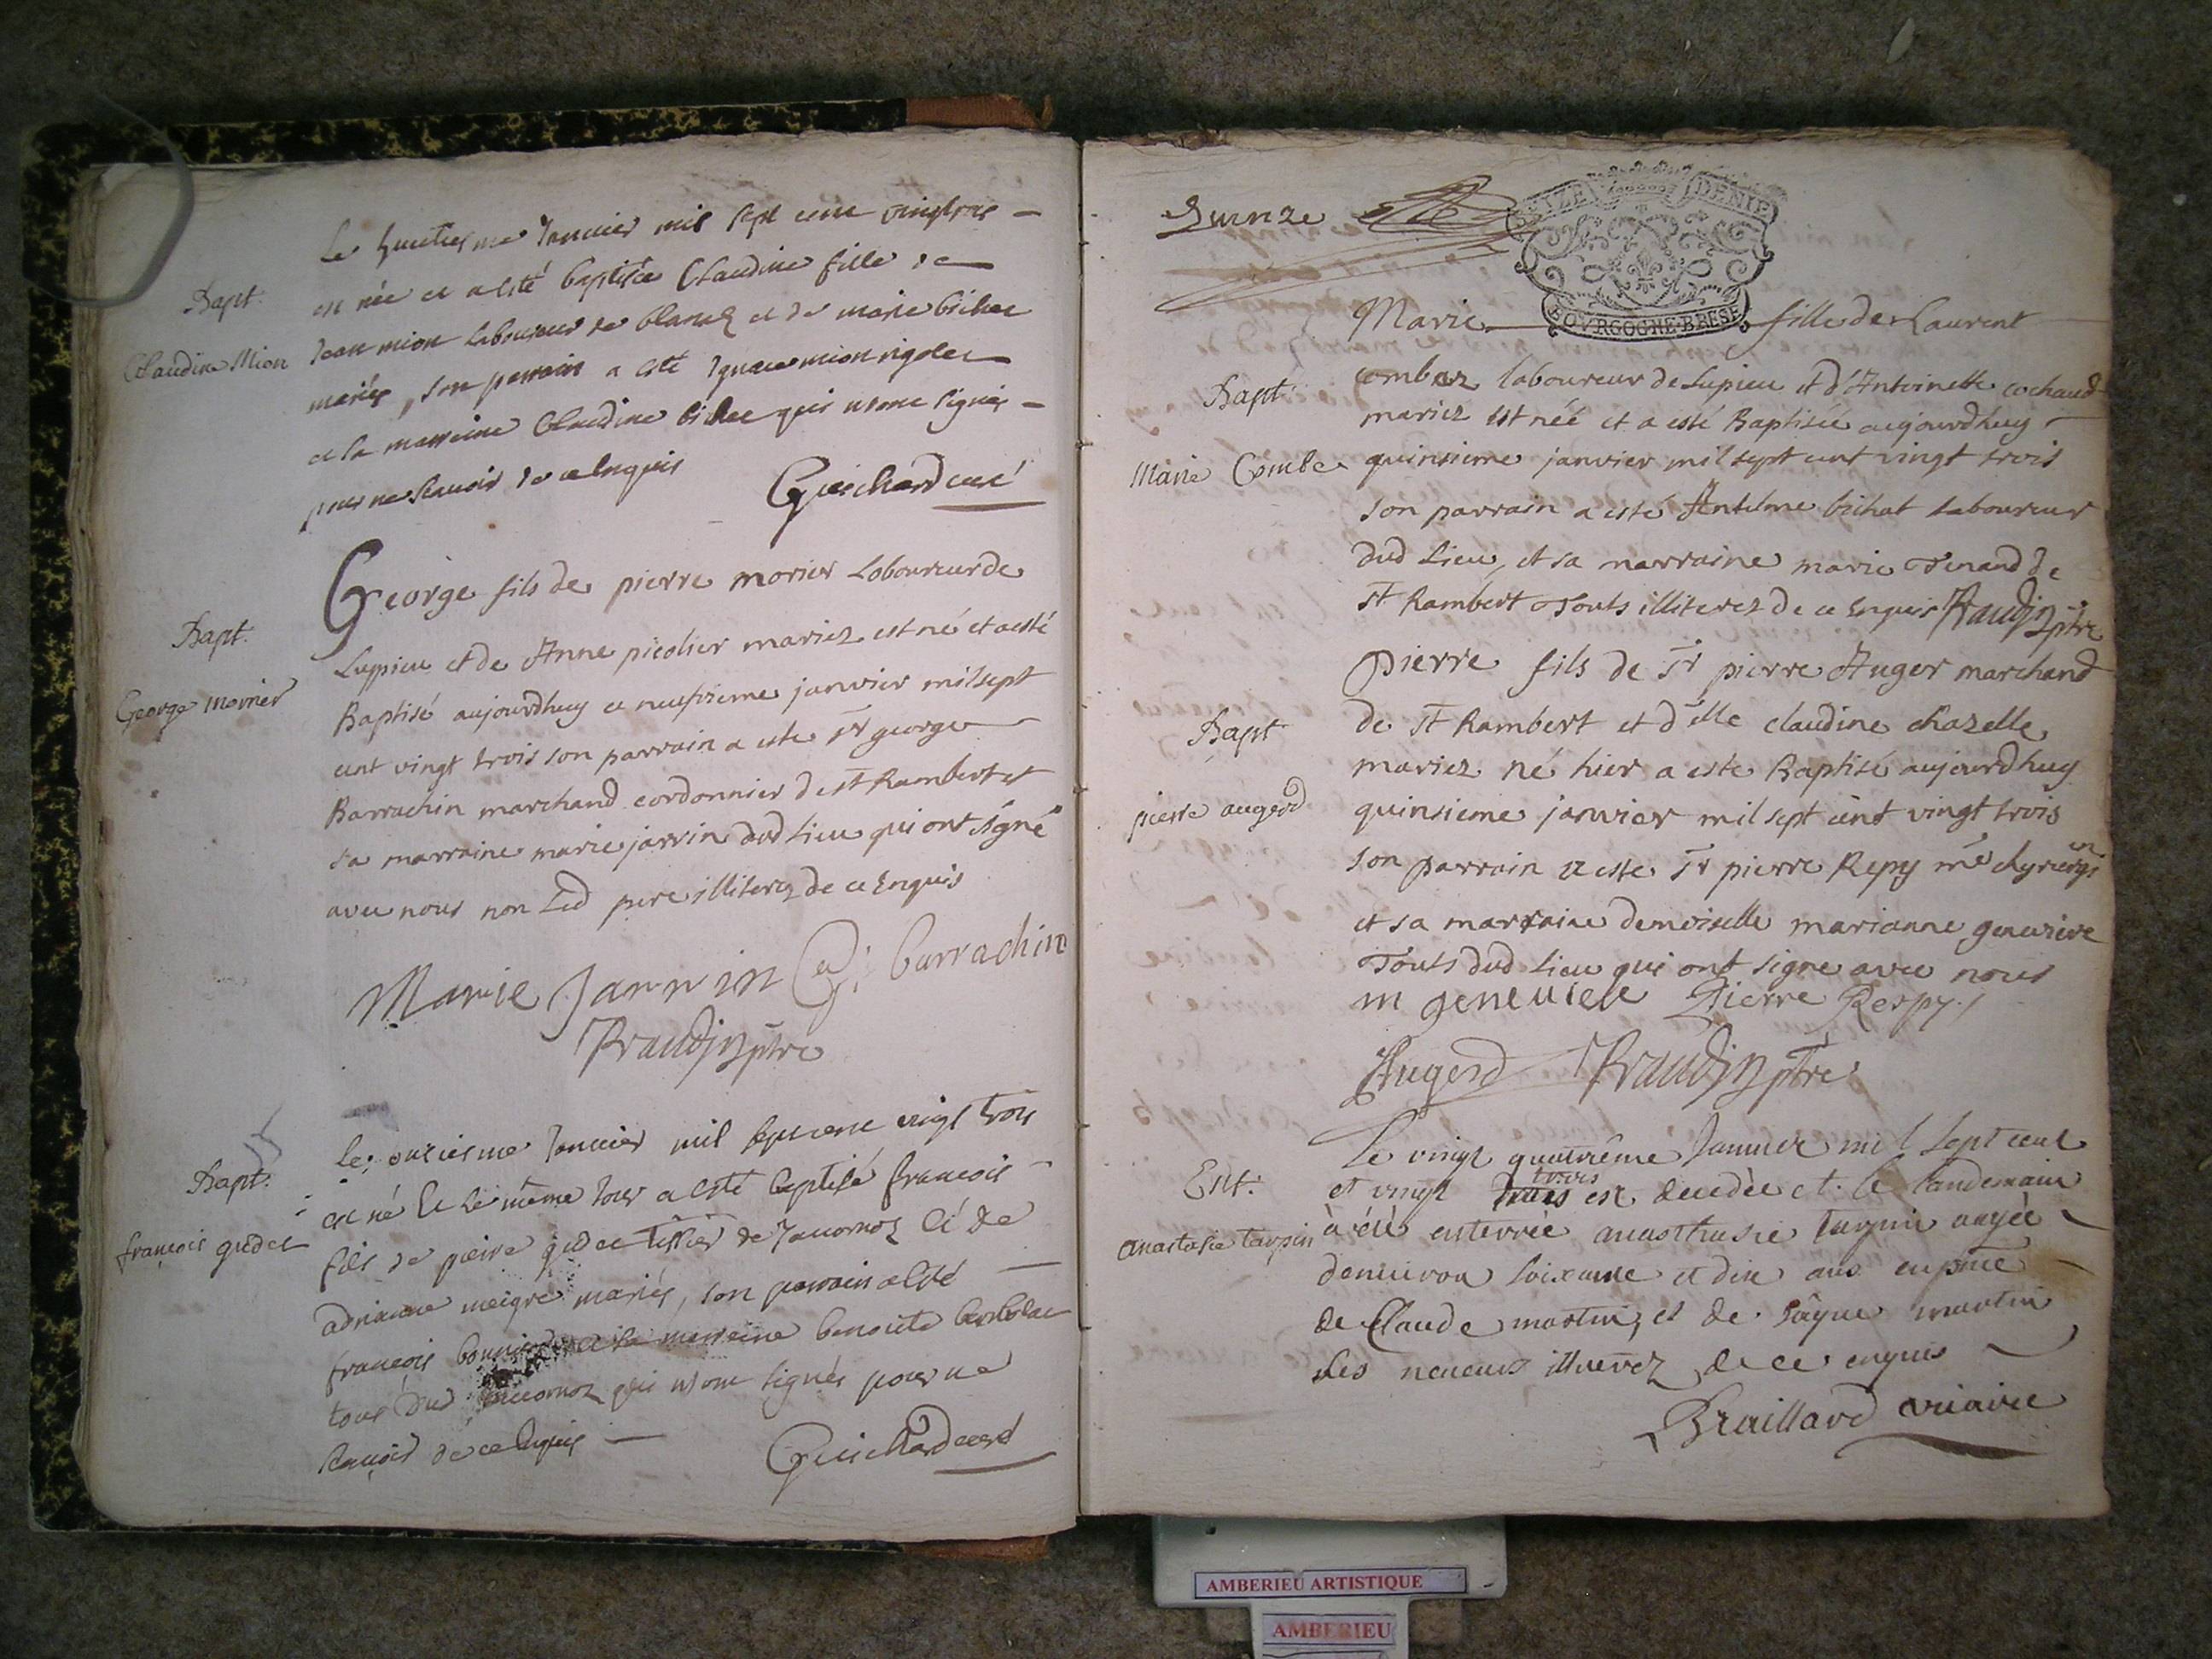 Le huictiesme Janvier mil sept cent vingttrois
Bapt. est née et a esté baptisée Claudine fille de
Claudine Mion Jean mion laboureur de blanaz et de marie bichat
mariés, son parrain a esté Ignace mion rigolet
et la marreine Claudine bichat qui n'ont signés
pour ne scavoir de ce enquis Guichard curé
George fils de pierre morier Laboureur de
Bapt. Luppieu et de Anne picolier mariez est né et a esté
George morier Baptisé aujourdhuy ce neufvieme janvier mil sept
cent vingt trois son parrain a este Sr george
Barrachin marchand cordonnier de St Rambert et
sa marraine marie jarrin dud lieu qui ont signé
avec nous non Led pere illiterez de ce Enquis
Marie Jarrin G: barrachin
Braudin ptre
Le onziesme Janvier mil sept cent vingt trois
Bapt. est né et le même Jour a esté baptisé francois
françois gudet fils de pierre gudet tissier de Javornoz et de
adrianne meigre mariés, son parrain a esté
françois et la marreine benoite
tous dud Javornoz qui n'ont signés pour ne
scavoir de ce enquis Guichard curé
Quinze
SEIZE DENIE
BOVRGOGNE·BRESE
Marie fille de Laurent
Bapt combez laboureur de Lupieu et d'Antoinette cochaud
mariez est néé et a esté Baptiséé aujourdhuy
Marie Combe quinsieme janvier mil sept cent vingt trois
son parrain a esté Antelme bichat Laboureur
dud Lieu, et sa marraine marie Tenand de
St Rambert Touts illiterez de ce Enquis Braudin ptre
Pierre fils de Sr pierre Auger marchand
Bapt de St Rambert et d'elle claudine chazelle
mariez né hier a este Baptisé aujourdhuy
pierre augerd quinsieme janvier mil sept cent vingt trois
son parrain a este Sr pierre Repy me chyrurgien
et sa marraine demoiselle marianne genevieve
Touts dud Lieu qui ont signe avec nous
m genevieve Pierre Respy
Augerd Braudin ptre
Le vingt quatrième Janvier mil sept cent
Ent. et vingt trois est decedée et le landemain
Anastasie tarpin à été enterrée anasthasie tarpin aagée
denviron soixante et dix ans en pnce
de Claude martin, et de martin
ses neveux illiterez de ce enquis
Braillard vicaire
AMBERIEU ARTISTIQUE
AMBERIEU